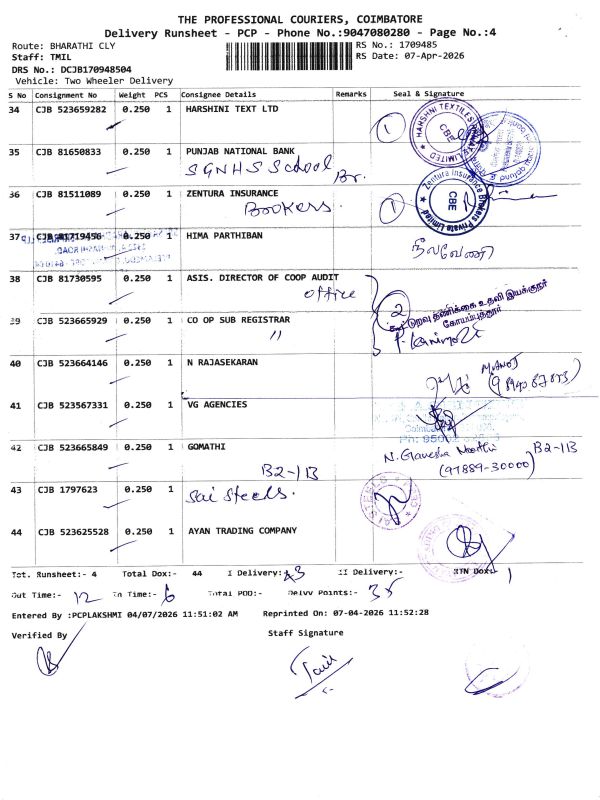 THE PROFESSIONAL COURIERS, COIMBATORE
Delivery Runsheet - PCP - Phone No.:9047080280 - Page No.:4
Route: BHARATHI CLY
RS No.: 1709485
Staff: TMIL
RS Date: 07-Apr-2026
DRS No.: DCJB170948504
Vehicle: Two Wheeler Delivery
S No Consignment No Weight PCS Consignee Details Remarks Seal & Signature
34 CJB 523659282 0.250 1 HARSHINI TEXT LTD
1
HARSHNI TEXTILES LIMITED
CBE
35 CJB 81650833 0.250 1 PUNJAB NATIONAL BANK
SGNHS School Br.
36 CJB 81511089 0.250 1 ZENTURA INSURANCE
Brokers.
1
Zentura Insurance Brokers Private Limited
CBE
37 CJB 81719456 0.250 1 HIMA PARTHIBAN
நீலவேணி
38 CJB 81730595 0.250 1 ASIS. DIRECTOR OF COOP AUDIT
office
2
கூட்டுறவு தணிக்கை உதவி இயக்குநர்
கோயம்புத்தூர்
39 CJB 523665929 0.250 1 CO OP SUB REGISTRAR
"
40 CJB 523664146 0.250 1 N RAJASEKARAN
41 CJB 523567331 0.250 1 VG AGENCIES
42 CJB 523665849 0.250 1 GOMATHI
B2-1B
N. Ganesha Moorthi B2-1B
(97889-30000)
43 CJB 1797623 0.250 1
Sai Steels.
44 CJB 523625528 0.250 1 AYAN TRADING COMPANY
Tot. Runsheet:- 4 Total Dox:- 44 I Delivery:- 43 II Delivery:- RTN Dox:- 1
Out Time:- 12 In Time:- 6 Total POD:- Delvy Points:- 35
Entered By :PCPLAKSHMI 04/07/2026 11:51:02 AM Reprinted On: 07-04-2026 11:52:28
Verified By Staff Signature